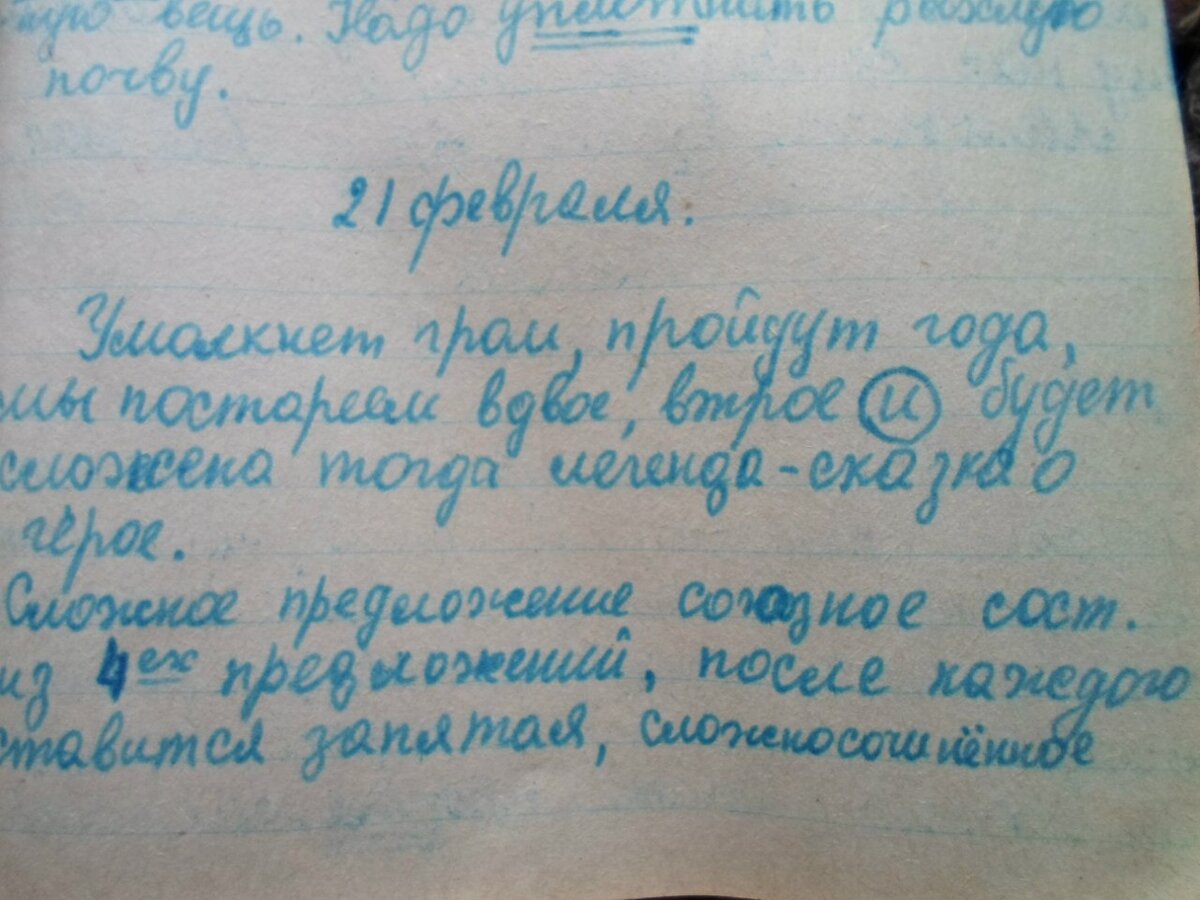 ную вещь. Надо уплотнить рыхлую
почву.
21 февраля.
Умолкнет гром, пройдут года,
мы постареем вдвое, втрое и будет
сложена тогда легенда-сказка о
герое.
Сложное предложение союзное сост.
из 4ех предложений, после каждого
ставится запятая, сложносочинённое